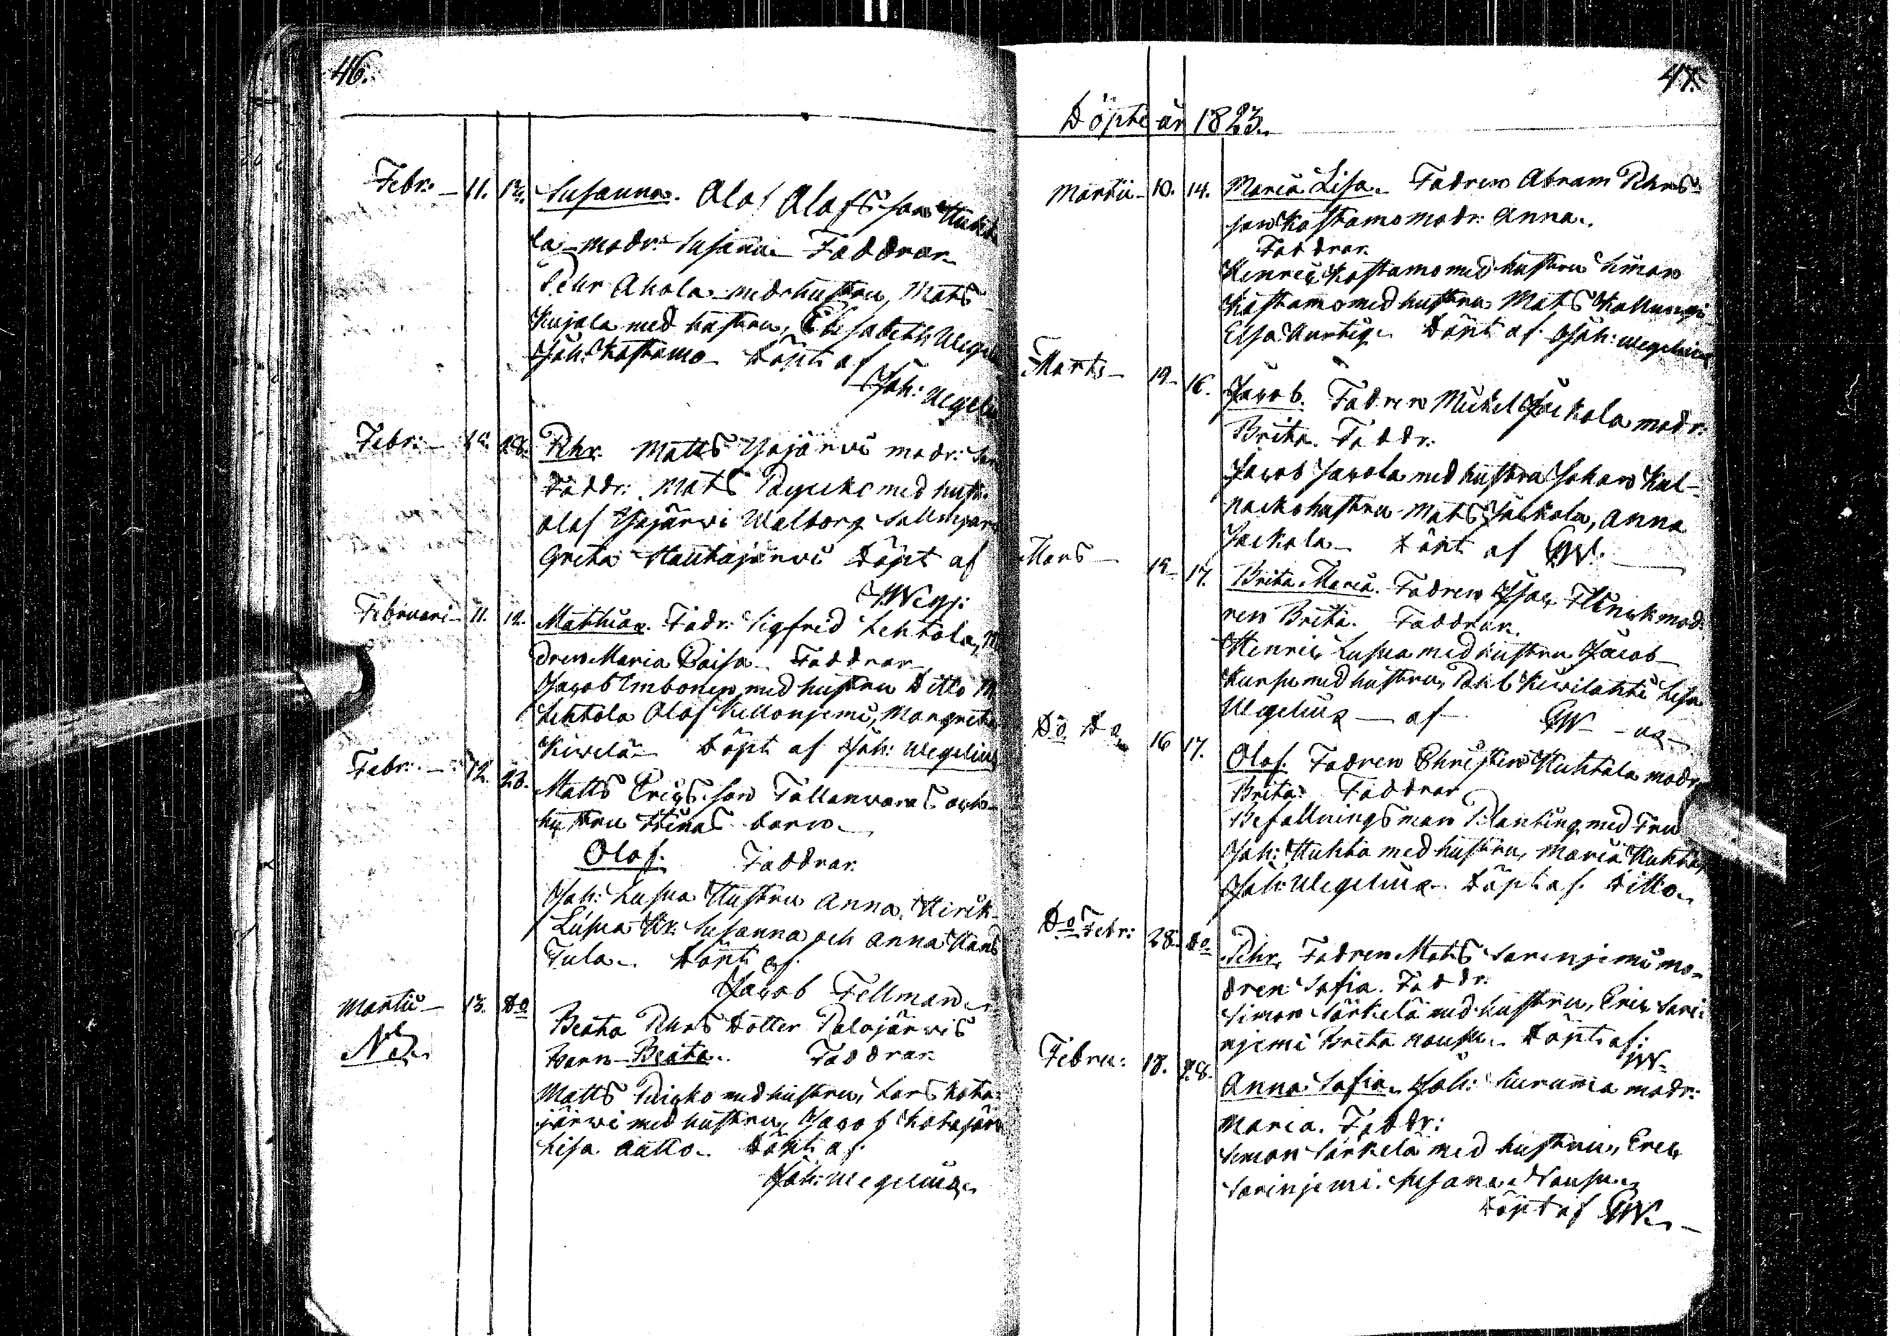 46.
Febr: 11. Susanna. Olof Olofsson
la modr: Susanna Faddrar
Pehr Ahola med hustru, Mats
Kujala med hustru, Elisabeth
Joh: Kostamo Döpt af
Joh: Wegeliu
Febr: 18. Pehr. Matts Yajärvi modr:
Faddr: Mats med hust.
Olof Yajärvi Walborg
Greta Hautajärvi Döpt af
JWeg:
Februari 11. 12. Mathias. Fadr: Sigfred Lehtola, M
dren Maria Caisa Faddrar
Jacob Imbonen med hustru Ditto M
Lehtola Olof Kellonjemi, Margreta
Kivelä Döpt af Joh: Wegelius
Febr: 12. 23. Matts Ericsson Tallavaras och
hustru Stinas barn
Olof. Faddrar
Joh: Lusua Hustru Anna, Hirik
Lusua Hr: Susanna och Anna Hans
Tula. Döpt af
Jacob Fellman
Martii 13. Do Beata Pehrs Dotter Palojärvis
NB. barn Beata. Faddrar
Matts med hustru, Lars Kota
järvi med hustru, Jacob Kotajärv
Lisa Aatto. Döpt af
Joh: Wegelius
47.
Döpte år 1823.
Martii 10. 14. Maria Lisa. Fadren Abram Pehrs
son Kostamo modr: Anna.
Faddrar
Henric Kostamo med hustru Simon
Kostamo med hustru Mats Kallungi
Elsa Kurtig. Döpt af Joh: Wegelius
Marts 19 16. Jacob. Fadren Mickel Jäckola modr:
Brita. Faddr:
Jacob Javola med hustru Johan Kul-
nacko hustru Mats Jäckola, Anna
Jackola. Döpt af JW.
Mars 19 17. Brita Maria. Fadren Isac Flinck mod
ren Brita. Faddrar.
Henric Lusua med hustru Jacob
Kursu med hustru, Pehl Kivilahti Lisa
Wegelius af JW
Do Do 16 17. Olof. Fadren Christer Kuhtala modr
Brita. Faddrar
Befallningsman Planting med Fru
Joh: Kuhta med hustru, Maria Kuhta
Joh: Wegelius. Döpt af Ditto.
Do Febr: 28 Do Pehr, Fadren Mats Sarinjemi mo-
dren Sofia. Faddr:
Simon Särkelä med hustru, Eric Sari
njemi Brita Döpt af:
JW.
Februa: 18. 28. Anna Sofia. Joh: Kurunia modr:
Maria. Faddr:
Simon Särkelä med hustru, Eric
Sarinjemi. Susana
Döpt af JW.